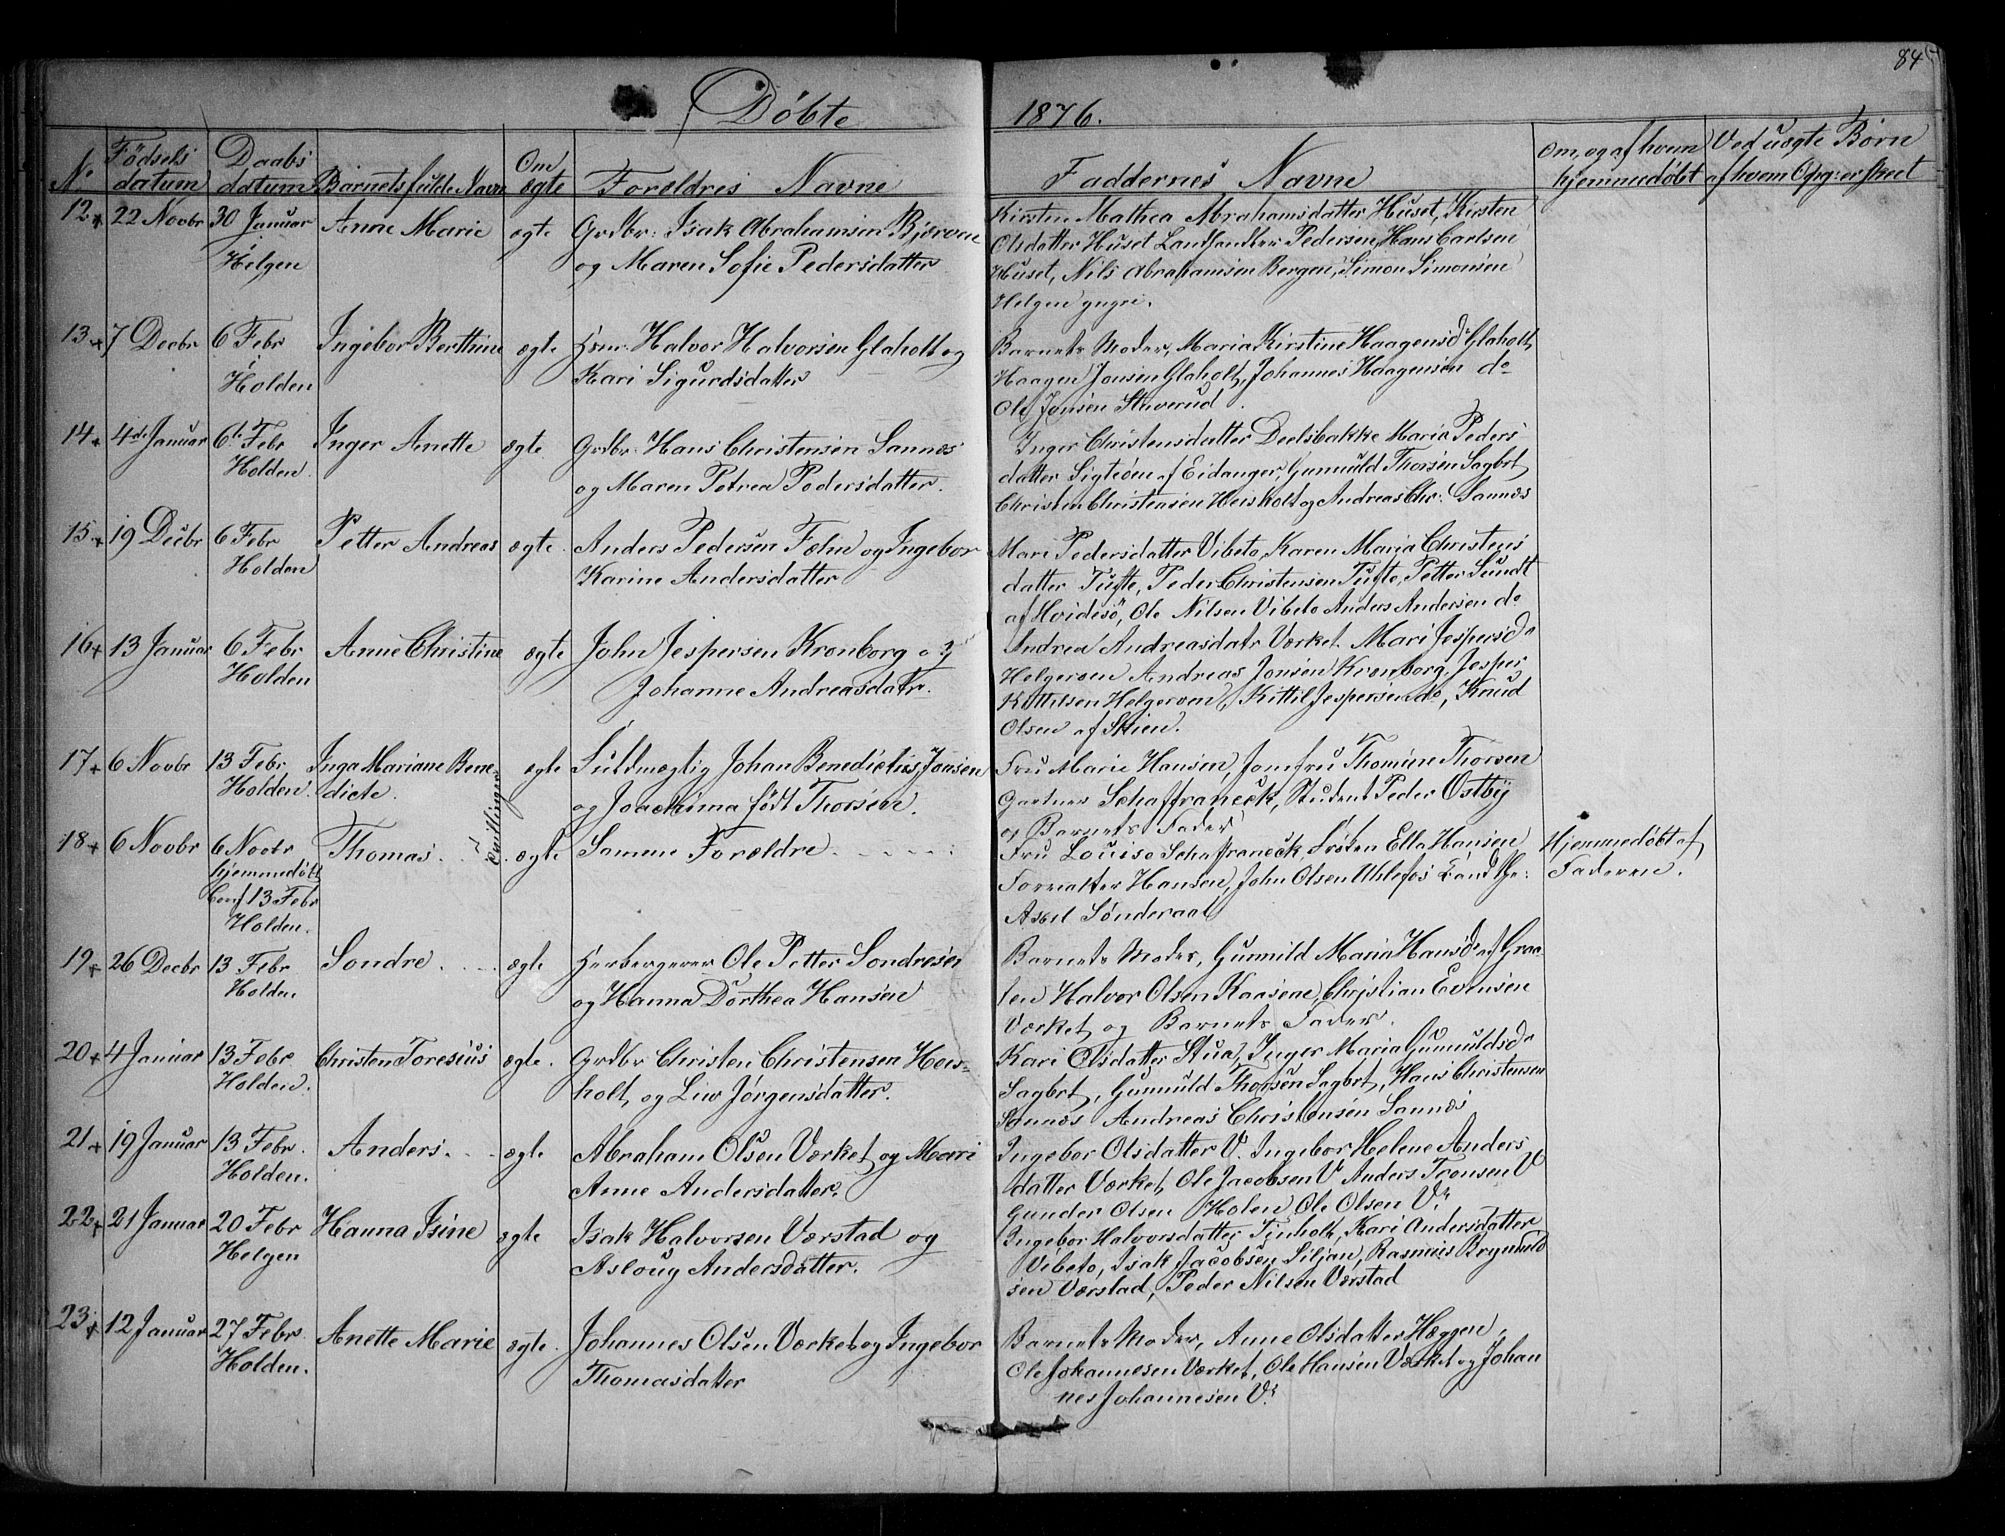 84
Døbte 1876.
No
Fødsels datum
Daabs datum
Barnets fulde Navn
Om ægte
Forældres Navne
Faddernes Navne
Om, og af hvem hjemmedøbt
Ved uægte Børn af hvem Opg: er skeet
12 + 22 Novbr 30 Januar i Helgen Anne Marie ægte
Grdbr: Isak Abrahamsen Bjerven
og Maren Sofie Pedersdatter
Kirsten Mathea Abrahamsdatter Huset, Kirsten
Olsdatter Huset Landhandler Pedersen, Hans Carlsen
Huset, Nils Abrahamsen Bergen, Simon Simonsen
Helgen
13 + 7 Decbr 6 Febr i Holden Ingebor Berthine ægte
Hsm: Halvor Halvorsen Glaholt og
Kari Sigurdsdatter
Barnets Moder, Maria Kirstine Haagensd. Glaholt,
Haagen Jonsen Glaholt, Johannes Haagensen do
Ole Jonsen Staverud.
14 + 4de Januar 6te Febr Holden. Inger Anette ægte
Grdbr: Hans Christensen Sannes
og Maren Petrea Pedersdatter.
Inger Christensdatter Deelsbakke Maria Peders
datter Sigteøen af Eidanger, Gunnuld Thorsen Sagbrt,
Christen Christensen Heisholt og Andreas Chr: Sannes
15 + 19 Decbr 6 Febr Holden Petter Andreas ægte.
Anders Pedersen Fæhn og Ingebor
Karine Andersdatter
Mari Pedersdatter Vibeto, Karen Maria Christens
datter Tufte, Peder Christensen Tufte, Petter Sundt
af Hvidesø, Ole Nilsen Vibeto Anders Andersen do
16 + 13 Januar 6 Febr Holden Anne Christine ægte
John Jespersen Kronborg og
Johanne Andreasdatr.
Andrea Andreasdatr Værket. Mari Jespersdr
Helgeroen Andreas Jonsen Kronborg, Jesper
Kittilsen Helgeroen, Kittil Jespersen do, Knud
Olsen af Skien.
17 + 6 Novbr 13 Febr Holden. Inga Mariane Bene
dicte. Tvillinger ægte
Fuldmægtig Johan Benedictus Jonsen
og Joachima født Thorsen.
Fru Marie Hansen, Jomfru Thomine Thorsen
Gartner Schaffraneck, Student Peder Østby
og Barnets Fader
18 + 6 Novbr 6 Novbr hjemmedøbt Conf 13 Febr Holden. Thomas. ægte
Samme Forældre
Fru Louise Schaffraneck, Frøken Ella Hansen
Forvalter Hansen, John Olsen Uhlefos
Axel Sønderaal
Hjemmedøbt af
Faderen.
19 + 26 Decbr 13 Febr Holden. Sondre. ægte
Herbergerer Ole Petter Sondresen
og Hanna Dorthea Hansen
Barnets Moder, Gunnild Maria Hansdr af Graa-
ten Halvor Olsen Kaasene, Christian Evensen
Værket og Barnets Fader.
20 + 4 Januar 13 Febr Holden. Christen Toresius ægte.
Grdbr Christen Christensen Heis-
holt, og Liv Jørgensdatter.
Kari Olsdatter Stua, Inger Maria Gunnuldsdr
Sagbrt, Gunnuld Thorsen Sagbrt, Hans Christensen
Sannes Andreas Christensen Sannes
21 + 19 Januar 13 Febr. Holden. Anders. ægte
Abraham Olsen Værket og Mari
Anne Andersdatter.
Ingebor Olsdatter V. Ingebor Helene Anders
datter Værket, Ole Jacobsen V. Anders Tronsen V
Gunder Olsen Holen Ole Olsen V.
22 + 21 Januar 20 Febr Helgen Hanna Isine ægte
Isak Halvorsen Værstad og
Asloug Andersdatter.
Ingebor Halvorsdatter Tinholt, Kari Andersdatter
Vibeto, Isak Jacobsen Siljan, Rasmus Brynuld
sen Værstad, Peder Nilsen Værstad
23 + 12 Januar 27 Febr. Holden. Anette Marie ægte.
Johannes Olsen Værket og Ingebor
Thomasdatter
Barnets Moder, Anne Olsdatter Hæggen,
Ole Johannesen Værket, Ole Hansen Værket og Johan
nes Johannesen V.